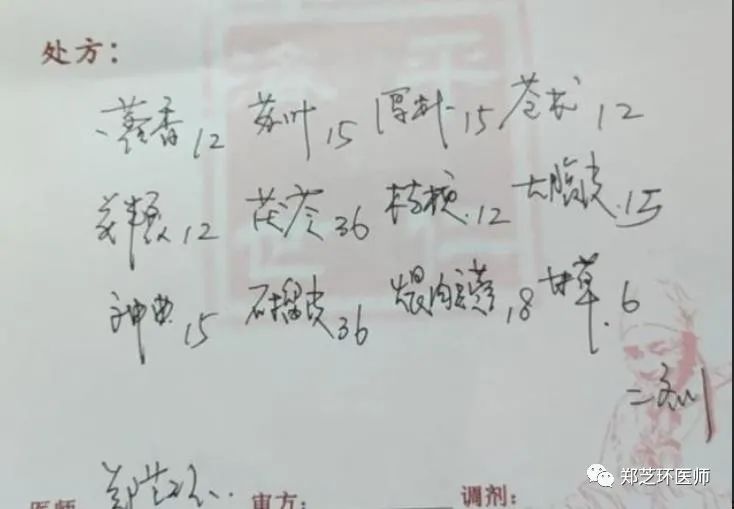 处方：
藿香12 苏叶15 厚朴15 苍术12
半夏12 茯苓36 桔梗12 大腹皮15
神曲15 石榴皮36 煨肉豆蔻18 甘草6
二剂
郑芝环
医师 审方： 调剂：
郑芝环医师